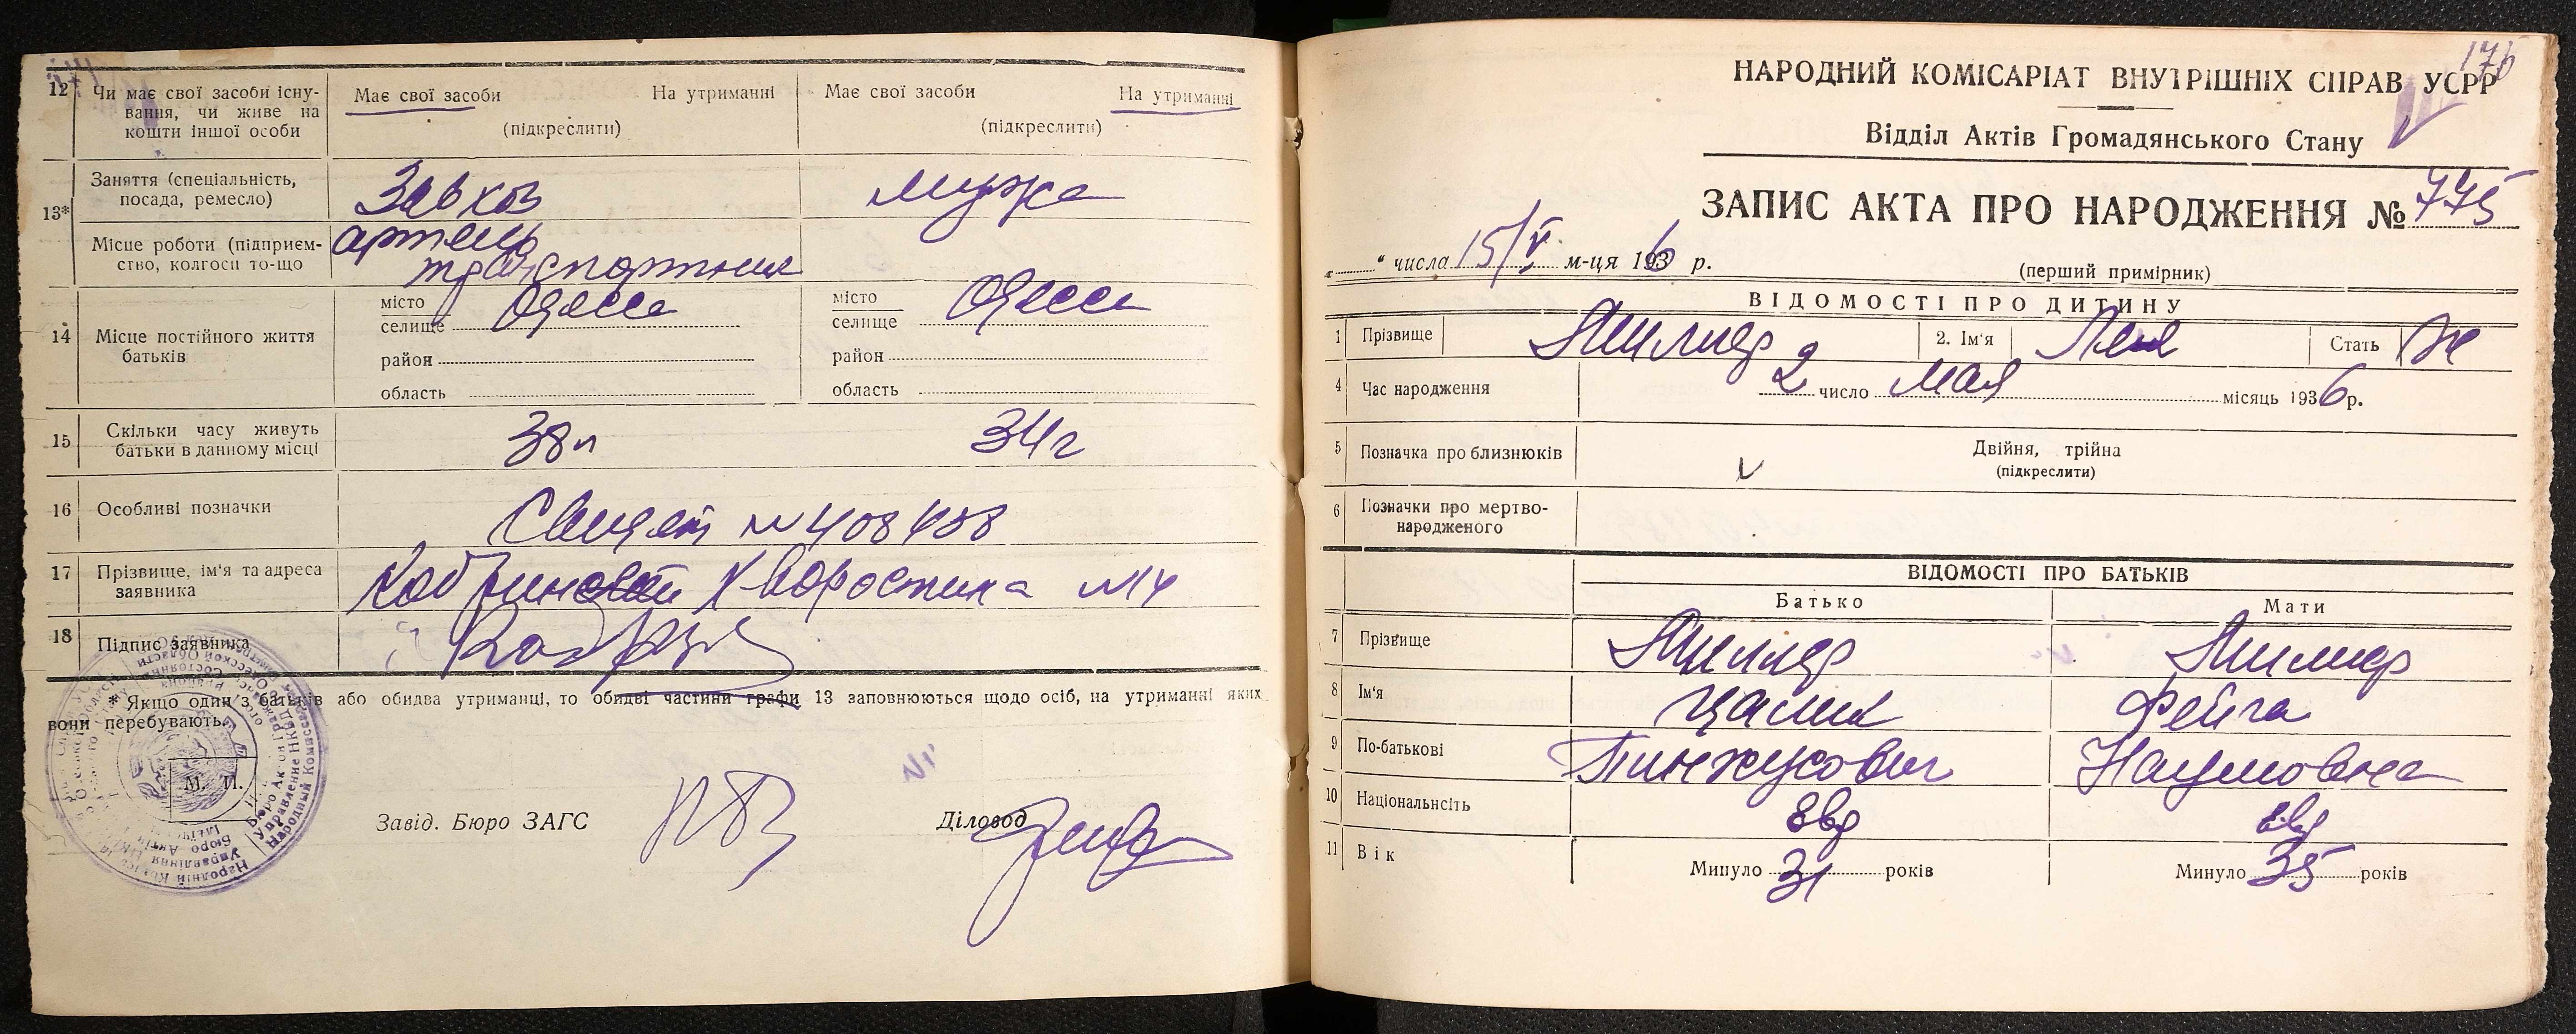 12
Чи має свої засоби існу-
вання, чи живе на
кошти іншої особи
Має свої засоби На утриманні
(підкреслити)
Має свої засоби На утриманні
(підкреслити)
13*
Заняття (спеціальність,
посада, ремесло)
Завхоз
мужа
Місце роботи (підприєм-
ство, колгосп то-що
артель
транспортник
14
Місце постійного життя
батьків
місто
селище Одесса
район
область
місто
селище Одесса
район
область
15
Скільки часу живуть
батьки в данному місці
38 л
34 г
16
Особливі позначки
№ 408408
17
Прізвище, ім'я та адреса
заявника
Хворостина №
18
Підпис заявника
* Якщо один з батьків або обидва утриманці, то обидві частини графи 13 заповнюються щодо осіб, на утриманні яких
вони перебувають.
М. П.
Завід. Бюро ЗАГС
Діловод
176
НАРОДНИЙ КОМІСАРІАТ ВНУТРІШНІХ СПРАВ УСРР
Відділ Актів Громадянського Стану
ЗАПИС АКТА ПРО НАРОДЖЕННЯ № 775
" " числа 15/V м-ця 1936 р.
(перший примірник)
ВІДОМОСТІ ПРО ДИТИНУ
1 Прізвище
2. Ім'я
Стать Ж
4 Час народження 2 число мая місяць 1936 р.
5 Позначка про близнюків
Двійня, трійна
(підкреслити)
6 Позначки про мертво-
народженого
ВІДОМОСТІ ПРО БАТЬКІВ
Батько Мати
7 Прізвище
8 Ім'я Цалик Фейга
9 По-батькові Пинхусович Наумовна
10 Національність Евр Евр
11 Вік Минуло 31 років Минуло 35 років